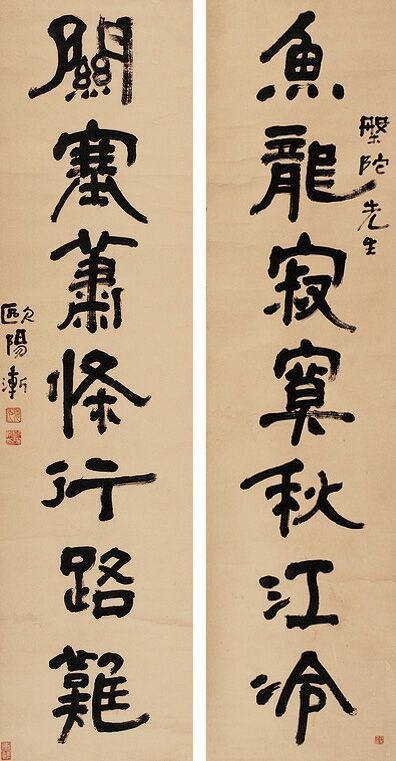 魚龍寂寞秋江冷
槃陀先生
關塞蕭條行路難
歐陽漸